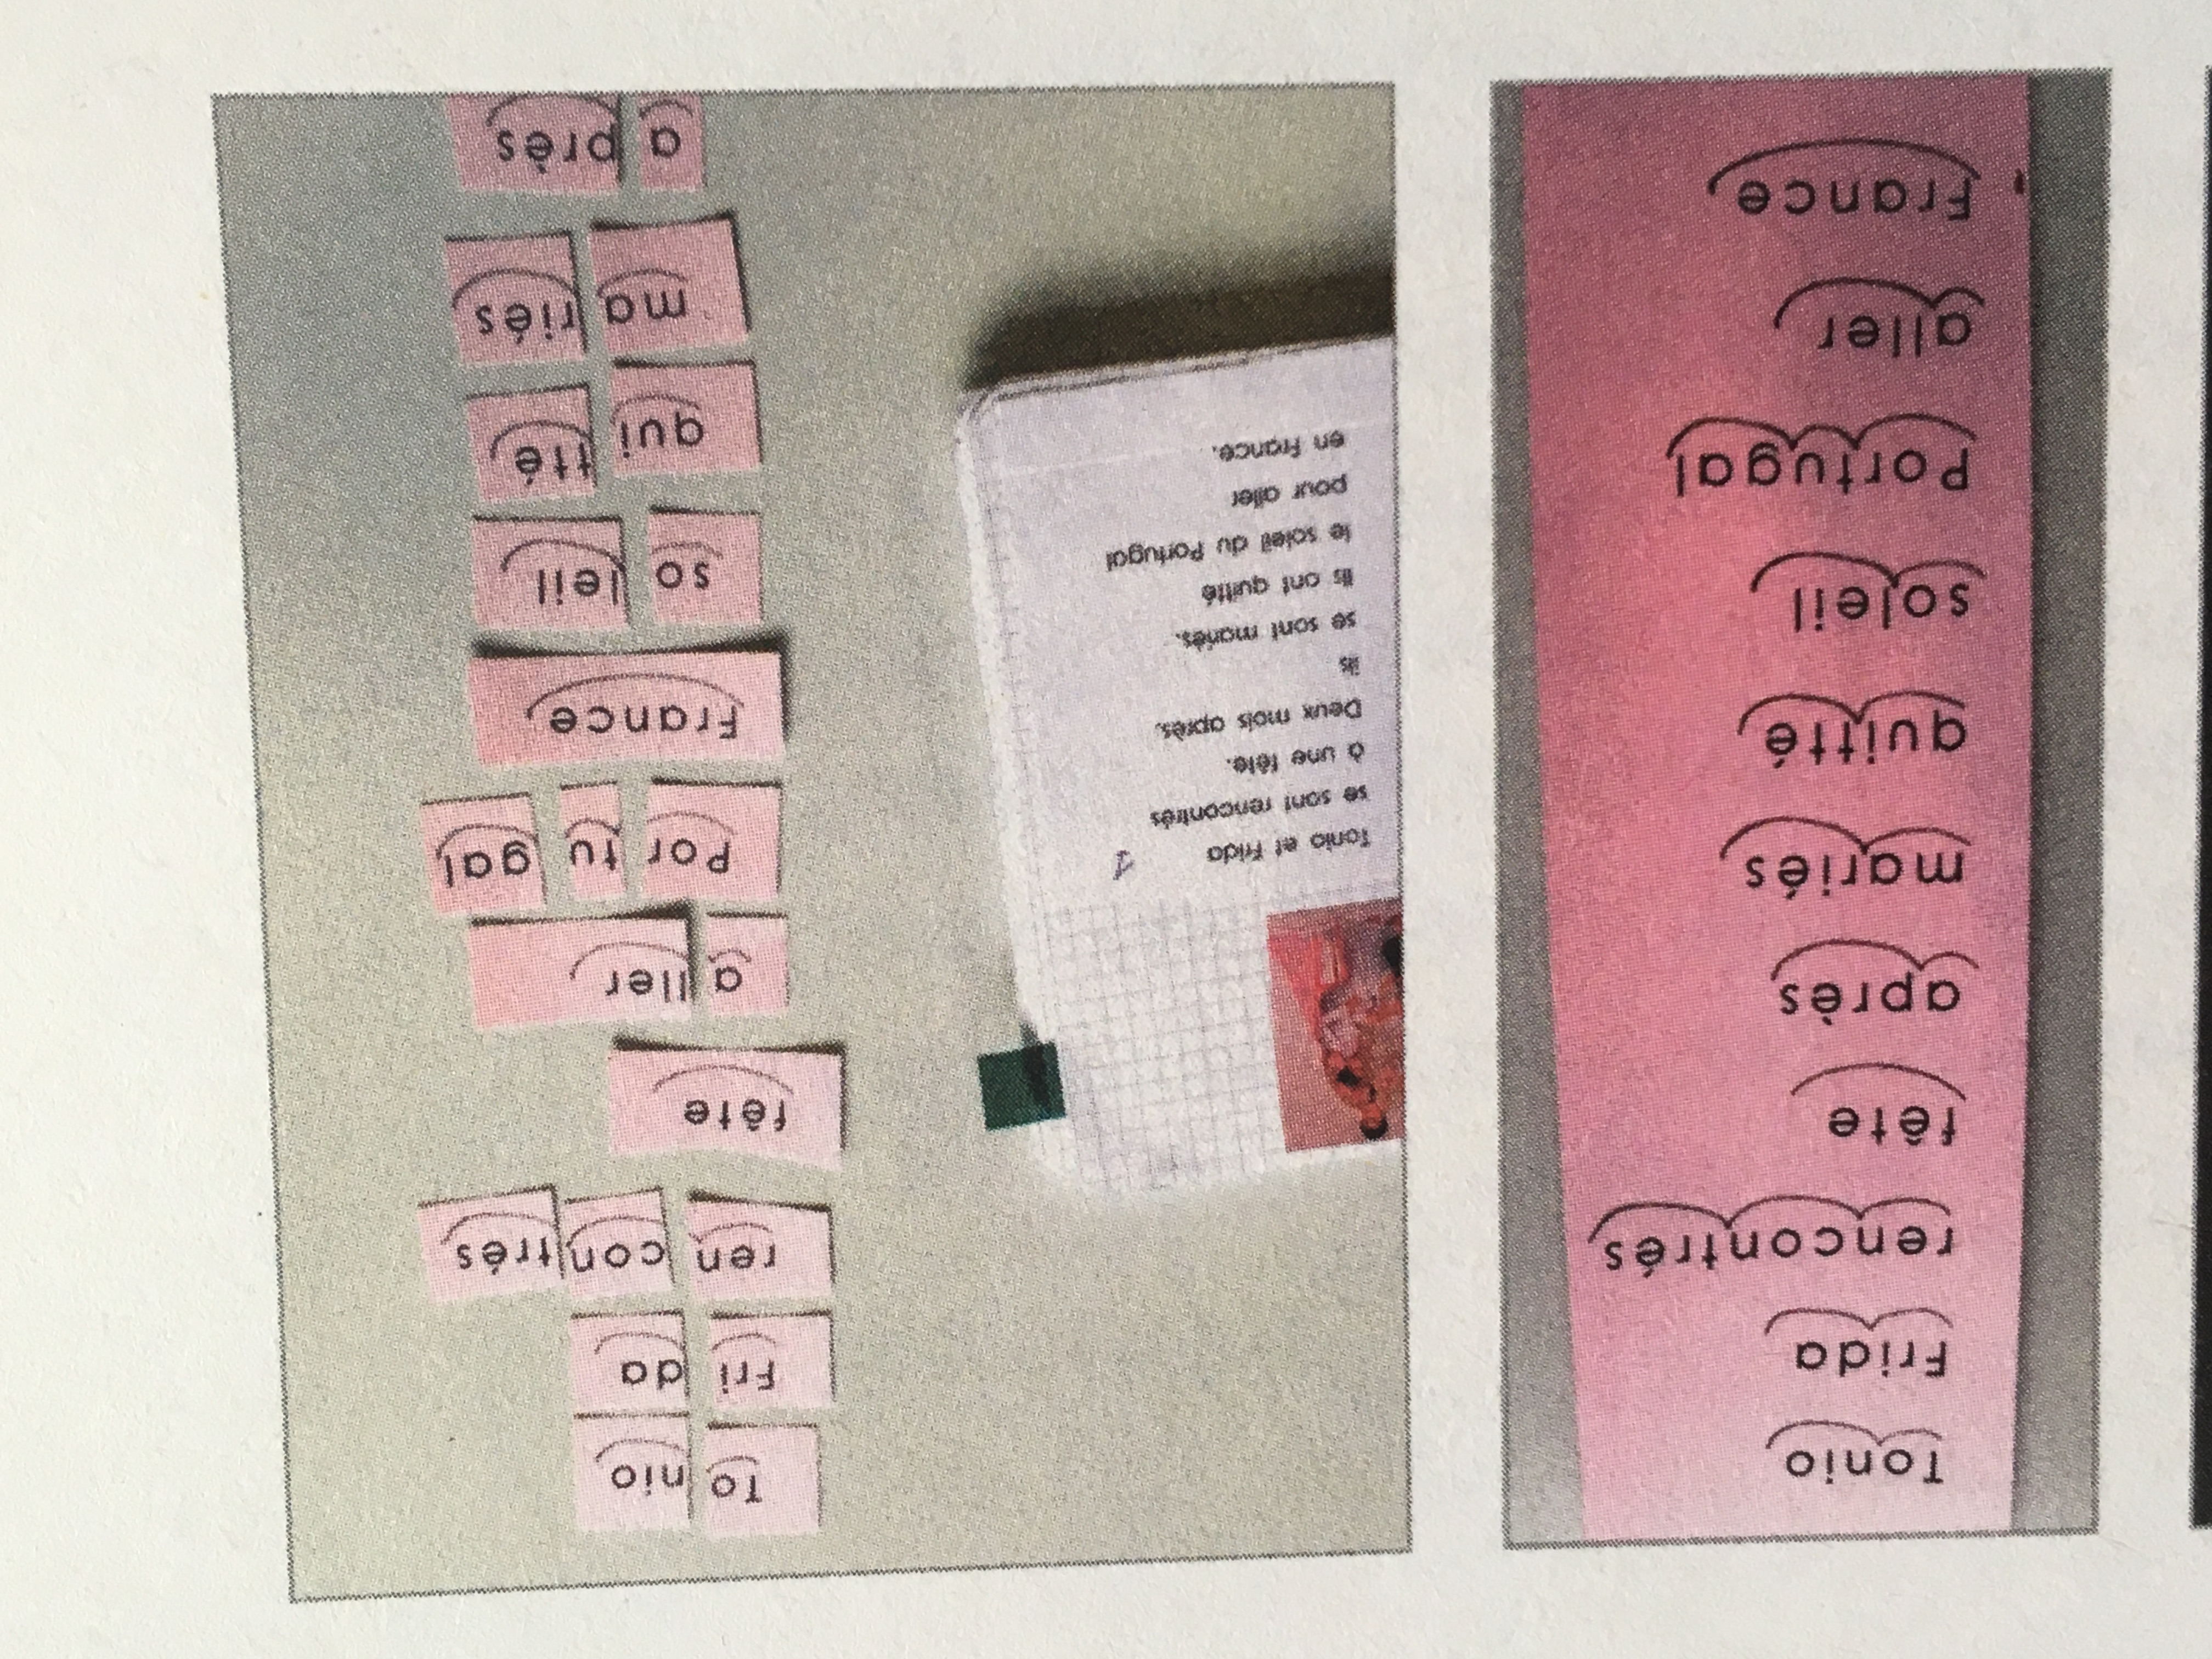 Tonio
Frida
rencontrés
fête
après
mariés
quitté
soleil
Portugal
aller
France
Tonio et Frida 1
se sont rencontrés
à une fête.
Deux mois après,
ils
se sont mariés.
Ils ont quitté
le soleil du Portugal
pour aller
en France.
To nio
Fri da
ren con trés
fête
a ller
Por tu gal
France
so leil
qui tté
ma riés
a près